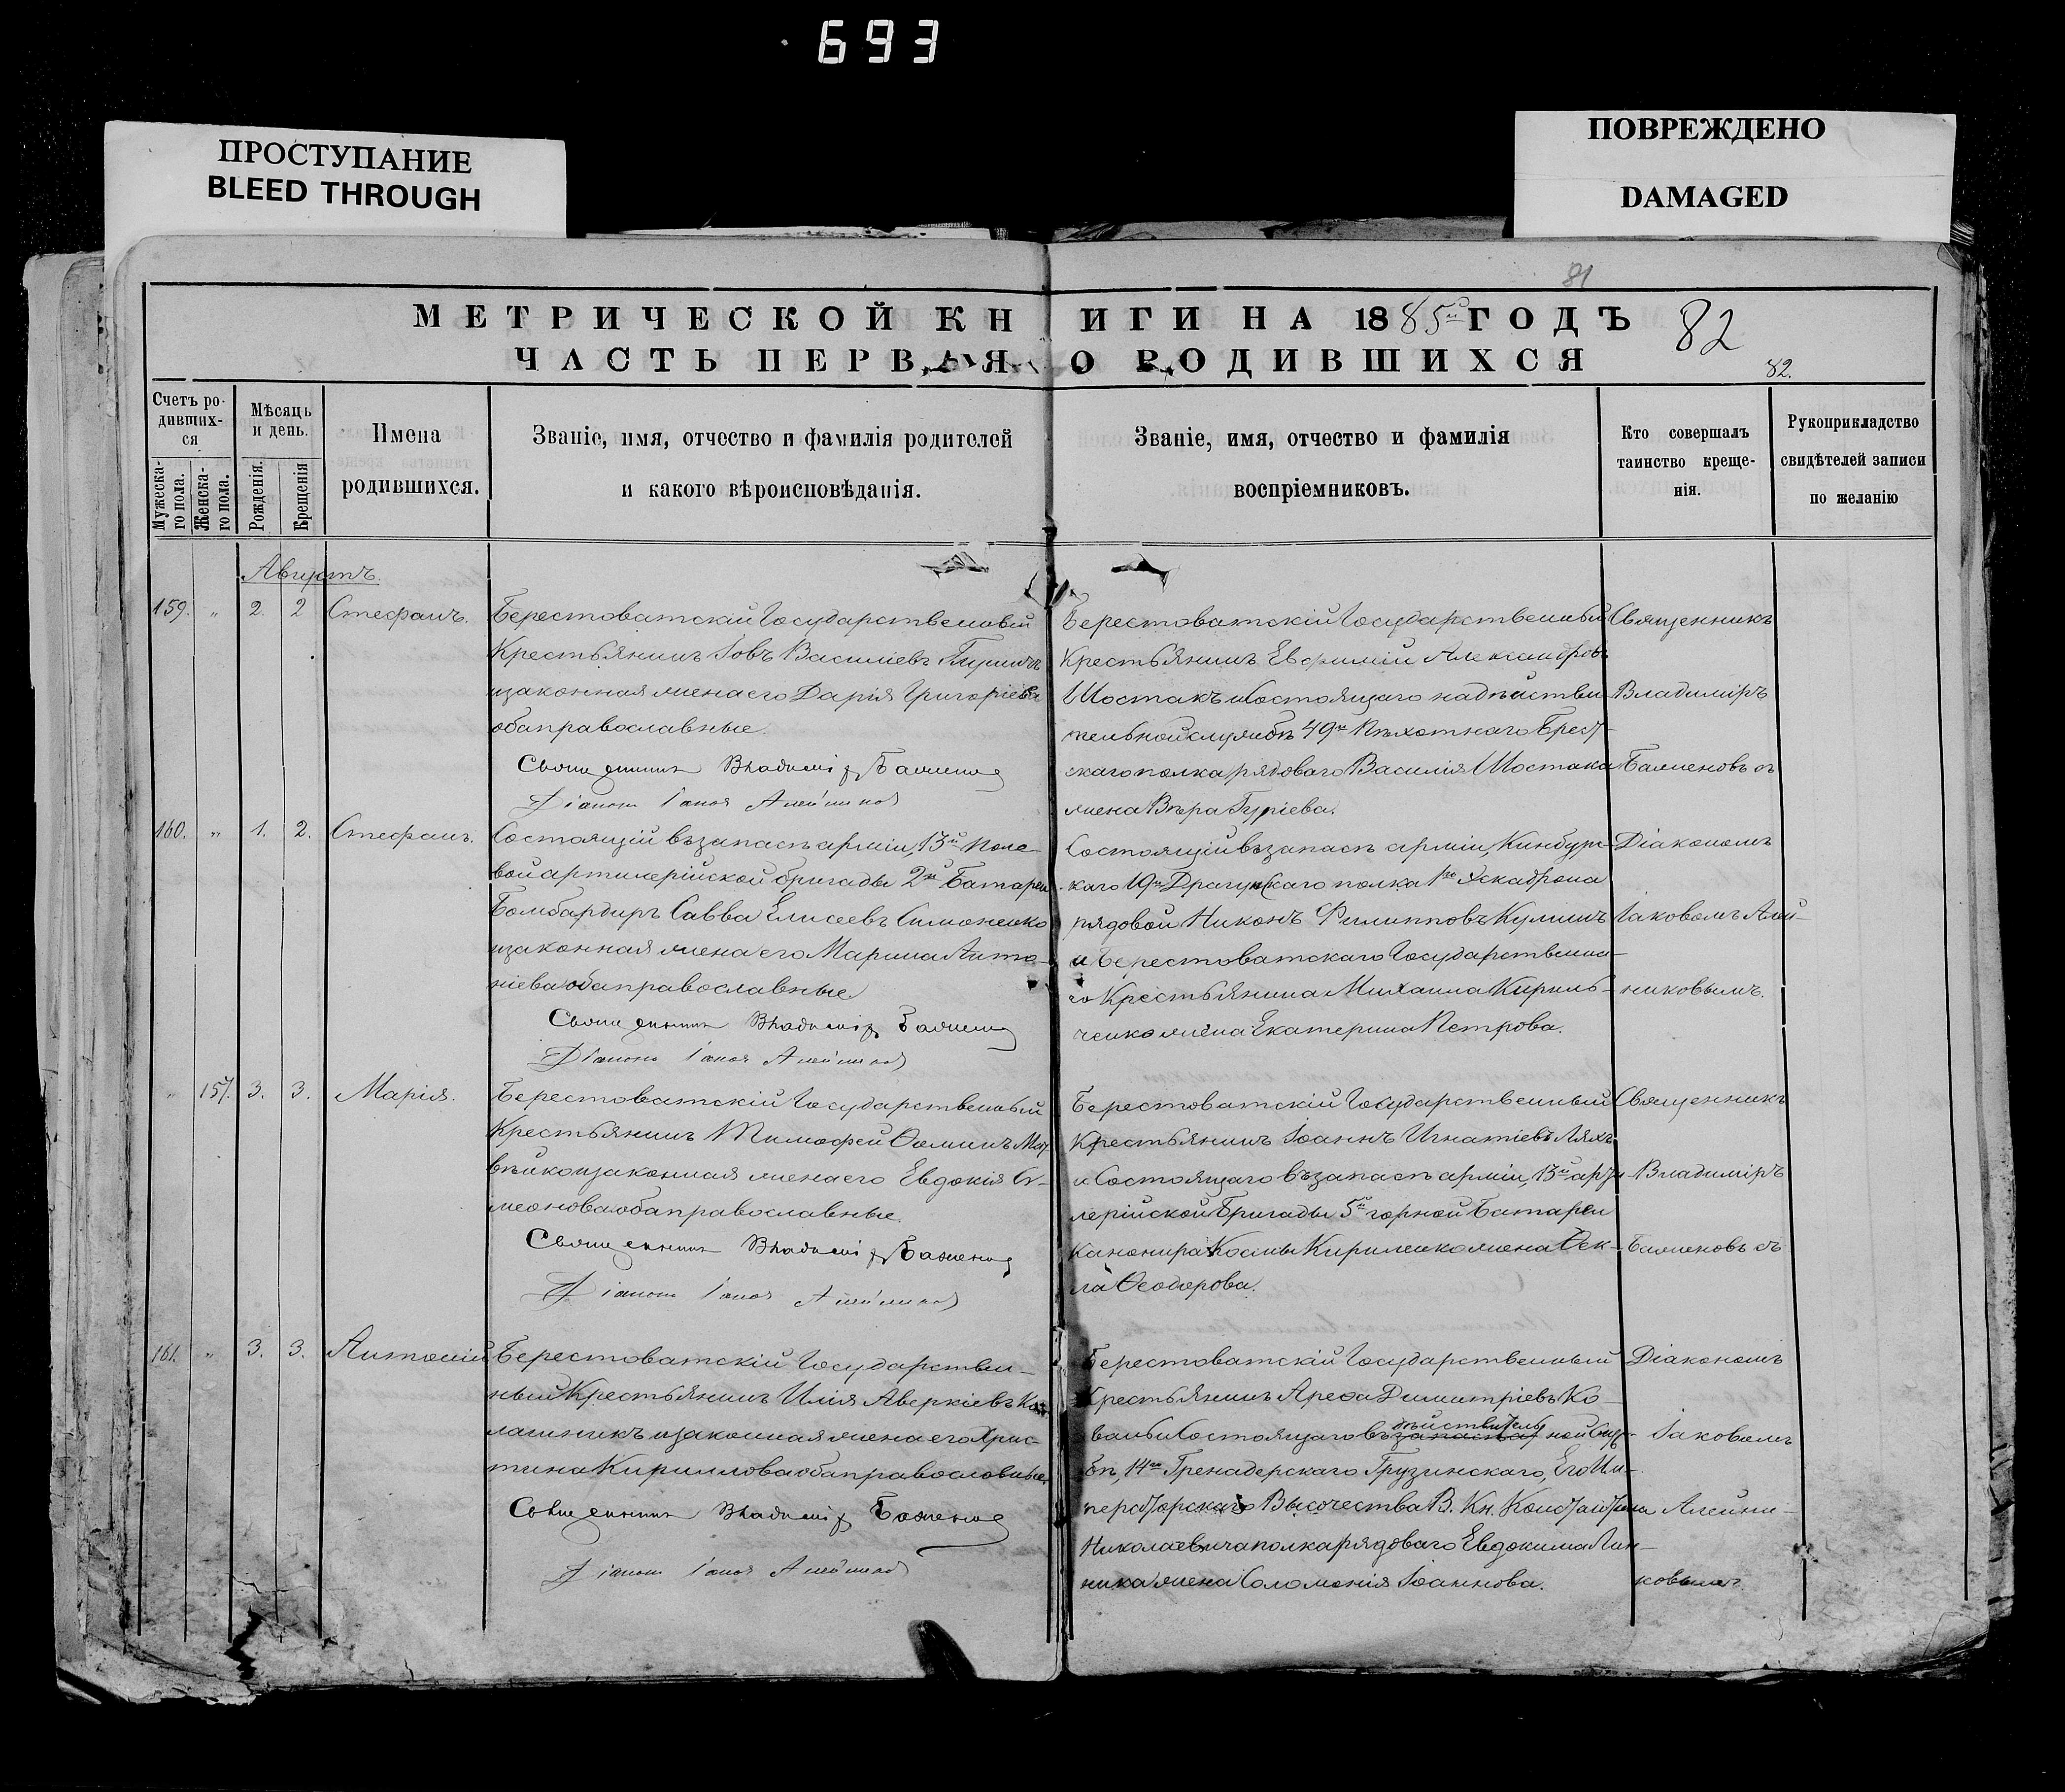 693
ПРОСТУПАНИЕ
BLEED THROUGH
ПОВРЕЖДЕНО
DAMAGED
81
МЕТРИЧЕСКОЙ КНИГИ НА 1885й ГОДЪ
82
ЧАСТЬ ПЕРВАЯ О РОДИВШИХСЯ
82.
Счетъ ро-
дивших-
ся
Мужеска-
го пола.
Женска-
го пола.
Мѣсяць
и день.
Рожденія.
Крещенія
Имена
родившихся.
Званіе, имя, отчество и фамилія родителей
и какого вѣроисповѣданія.
Званіе, имя, отчество и фамилія
воспріемниковъ.
Кто совершалъ
таинство креще-
нія.
Рукоприкладство
свидѣтелей записи
по желанію
Августъ.
159. " 2. 2 Стефанъ.
Берестоватскій Государственный
Крестьянинъ Іовъ Василіевъ
и законная жена его Дарія Григоріева
оба православные.
Священникъ Владиміръ Баженовъ
Діаконъ Іаковъ Алейниковъ
Берестоватскій Государственный
Крестьянинъ Евфимій Александровъ
Шостакъ и Состоящаго на дѣйстви
тельной службѣ 49го Пѣхотнаго Брест-
скаго полка рядоваго Василія Шостака
жена Вѣра Гуріева.
Священникъ
Владиміръ
Баженовъ съ
160. " 1. 2. Стефанъ.
Состоящій въ запасѣ арміи, 13й Поле-
вой артилерійской бригады 2й Батареи
Бомбардиръ Савва Елисеевъ Симоненко
и законная жена его Марина Анто-
ніева оба православные.
Священникъ Владиміръ Баженовъ
Діаконъ Іаковъ Алейниковъ
Состоящій въ запасѣ арміи, Кинбурн-
скаго 19го Драгунскаго полка 1го Эскадрона
рядовой Никонъ Филипповъ Кулишъ
и Берестоватскаго Государственна-
го Крестьянина Михаила Кириль-
ченко жена Екатерина Петрова.
Діакономъ
Іаковомъ Алей-
никовымъ.
" 157. 3. 3. Марія.
Берестоватскій Государственный
Крестьянинъ Тимофей Ѳоминъ Мат-
вѣйко и законная жена его Евдокія Си-
меонова оба православные.
Священникъ Владиміръ Баженовъ
Діаконъ Іаковъ Алейниковъ
Берестоватскій Государственный
Крестьянинъ Іоаннъ Игнатіевъ Ляхъ
и Состоящаго въ запасѣ арміи, 13й арти-
лерійской Бригады 5й горной Батареи
Канонира Космы Кириленко жена Ѳек-
ла Ѳеодорова.
Священникъ
Владиміръ
Баженовъ съ
161. " 3. 3. Антоній
Берестоватскій Государствен-
ный Крестьянинъ Илія Аверкіевъ
и законная жена его Хрис-
тина Кириллова оба православные.
Священникъ Владиміръ Баженовъ
Діаконъ Іаковъ Алейниковъ
Берестоватскій Государственный
Крестьянинъ Арефа Димитріевъ Ко-
валь и Состоящаго въ дѣйствитель ной Служ-
бѣ, 14го Гренадерскаго Грузинскаго, Его Им-
ператорскаго Высочества В. Кн. Константина
Николаевича полка рядоваго Евдокима Лин-
ника жена Соломонія Іоаннова.
Діакономъ
Іаковомъ
Алейни-
ковымъ